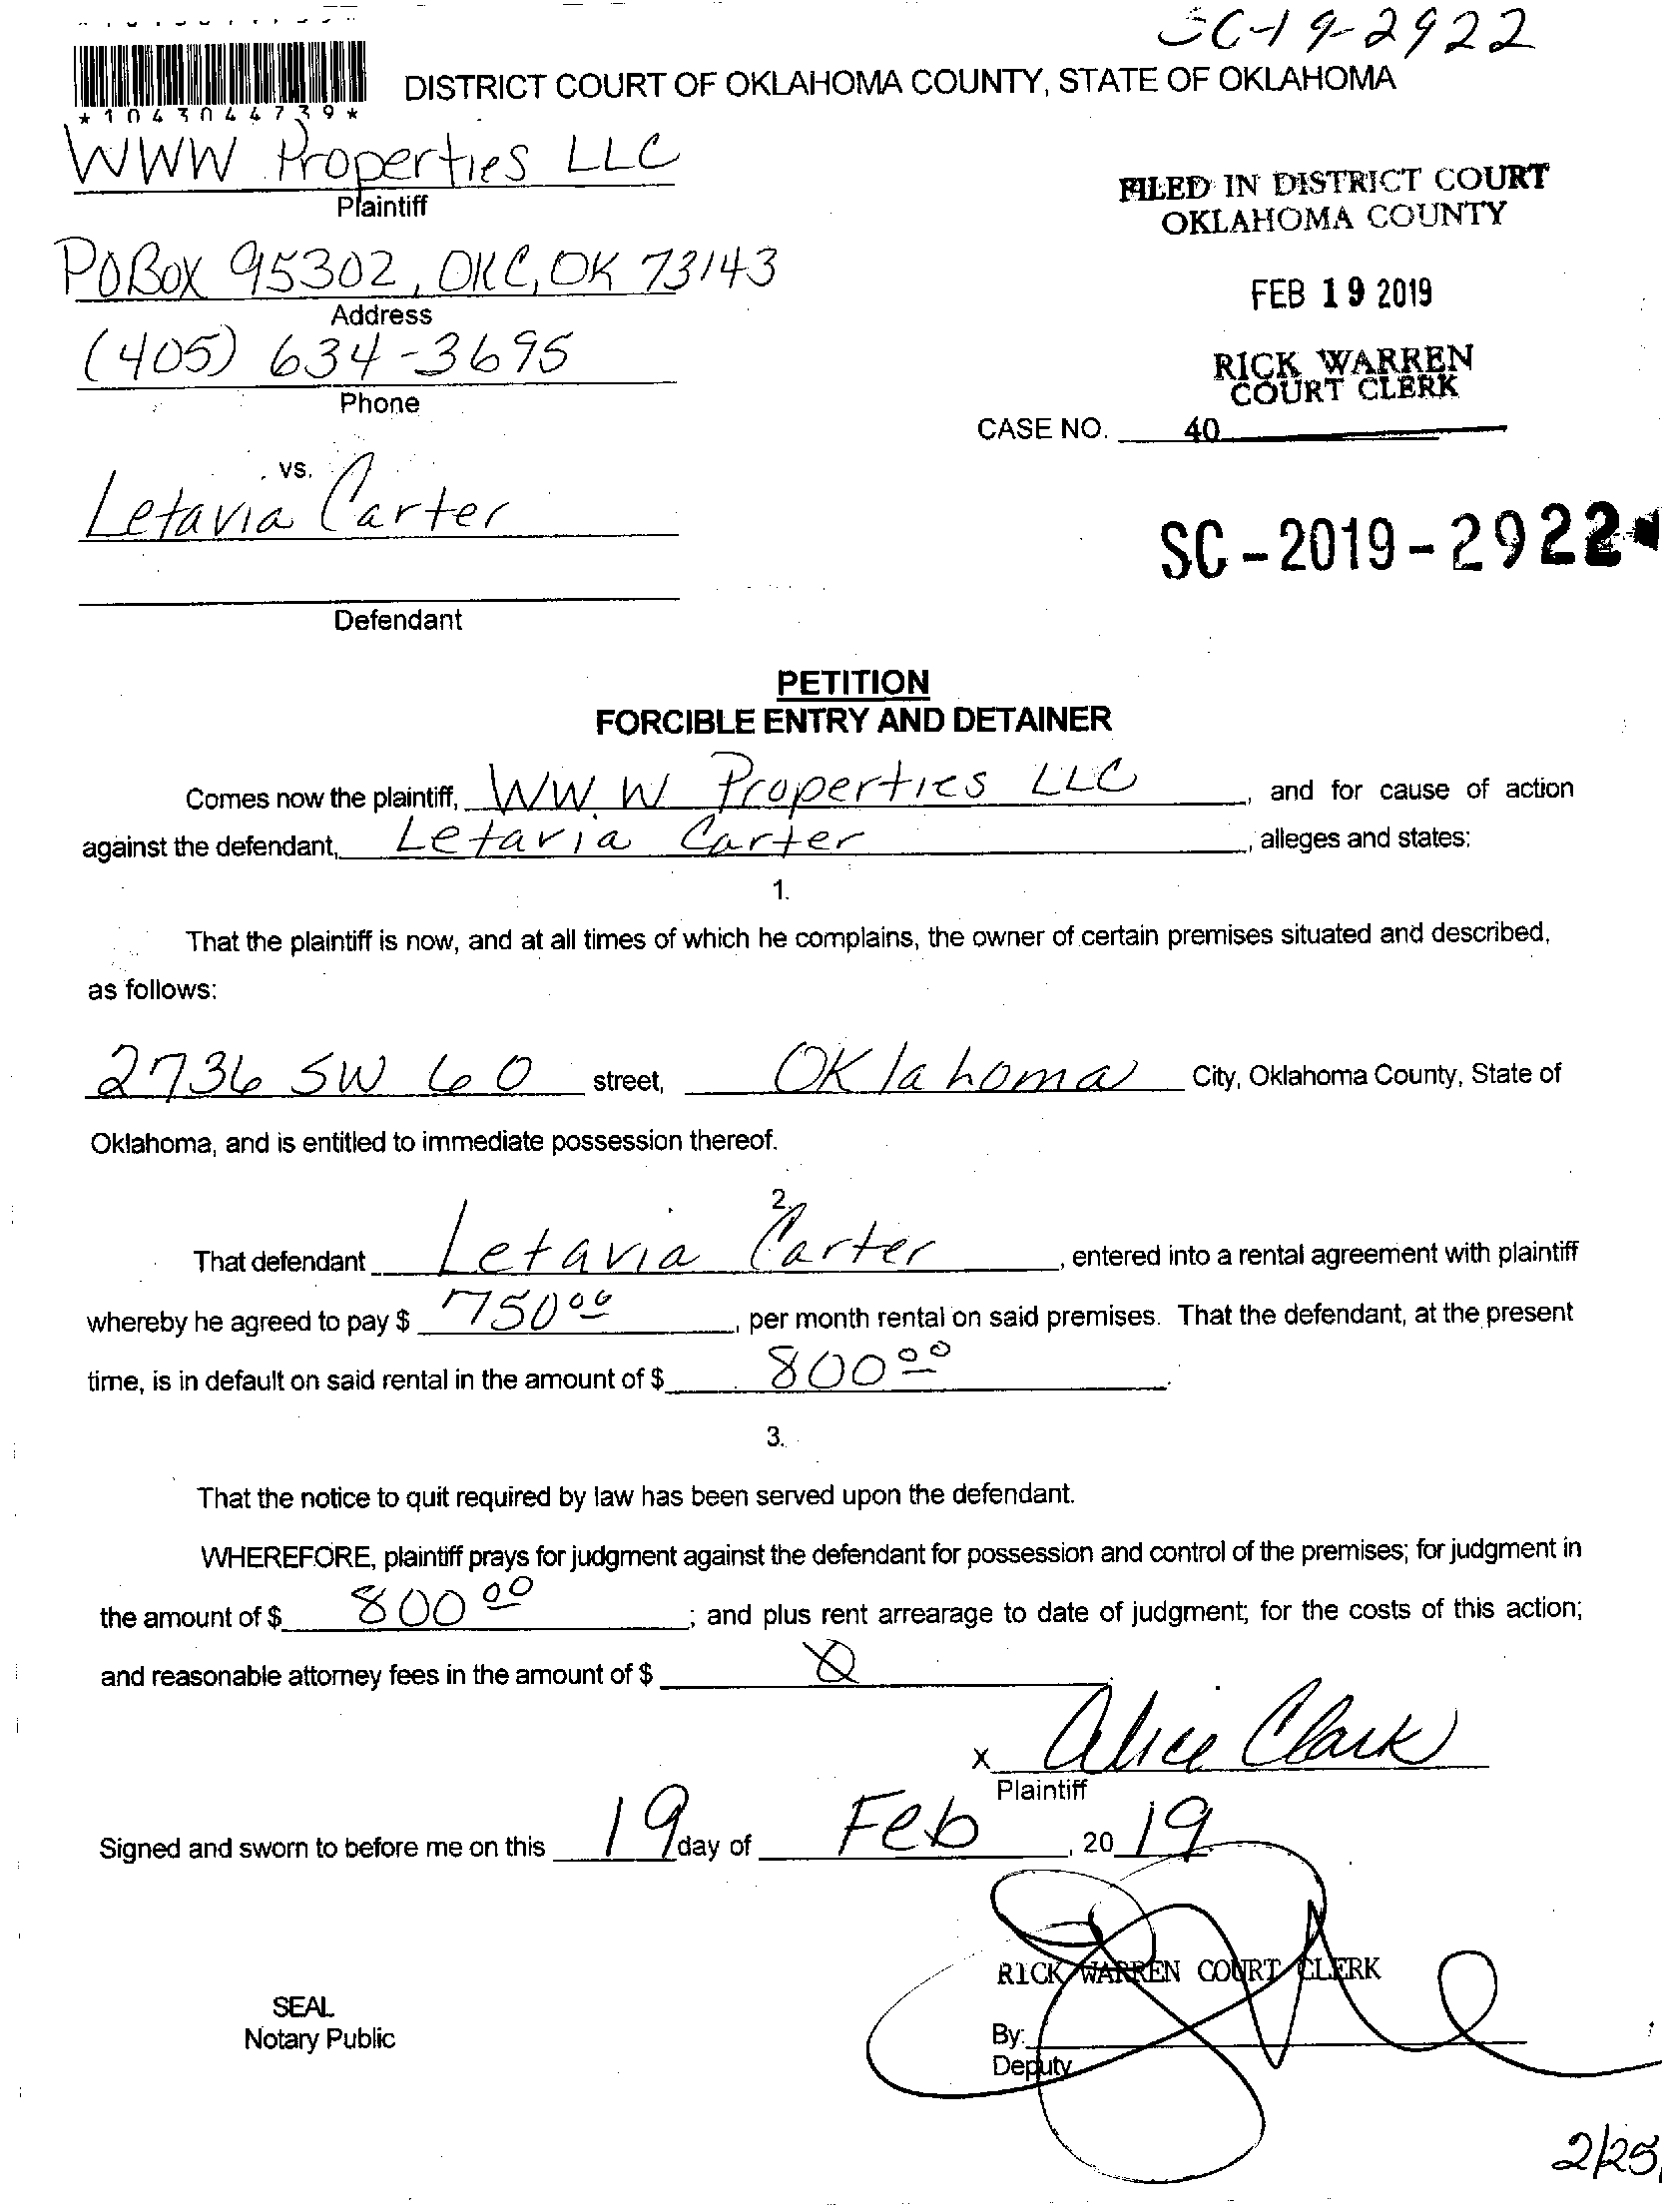 SC-19-2922
*1043044739*
DISTRICT COURT OF OKLAHOMA COUNTY, STATE OF OKLAHOMA
WWW Properties LLC
Plaintiff
FILED IN DISTRICT COURT
OKLAHOMA COUNTY
PO Box 95302, OKC, OK 73143
Address
FEB 19 2019
(405) 634-3695
Phone
RICK WARREN
COURT CLERK
CASE NO. 40
vs.
Letavia Carter
SC-2019-2922
Defendant
PETITION
FORCIBLE ENTRY AND DETAINER
Comes now the plaintiff, WWW Properties LLC, and for cause of action
against the defendant, Letavia Carter, alleges and states:
1.
That the plaintiff is now, and at all times of which he complains, the owner of certain premises situated and described,
as follows:
2736 SW 60 street, Oklahoma City, Oklahoma County, State of
Oklahoma, and is entitled to immediate possession thereof.
2.
That defendant Letavia Carter, entered into a rental agreement with plaintiff
whereby he agreed to pay $ 750 00, per month rental on said premises. That the defendant, at the present
time, is in default on said rental in the amount of $ 800 00.
3.
That the notice to quit required by law has been served upon the defendant.
WHEREFORE, plaintiff prays for judgment against the defendant for possession and control of the premises; for judgment in
the amount of $ 800 00; and plus rent arrearage to date of judgment; for the costs of this action;
and reasonable attorney fees in the amount of $ 0
x Alice Clark
Plaintiff
Signed and sworn to before me on this 19 day of Feb, 20 19
RICK WARREN COURT CLERK
SEAL
Notary Public
By:
Deputy
2/25